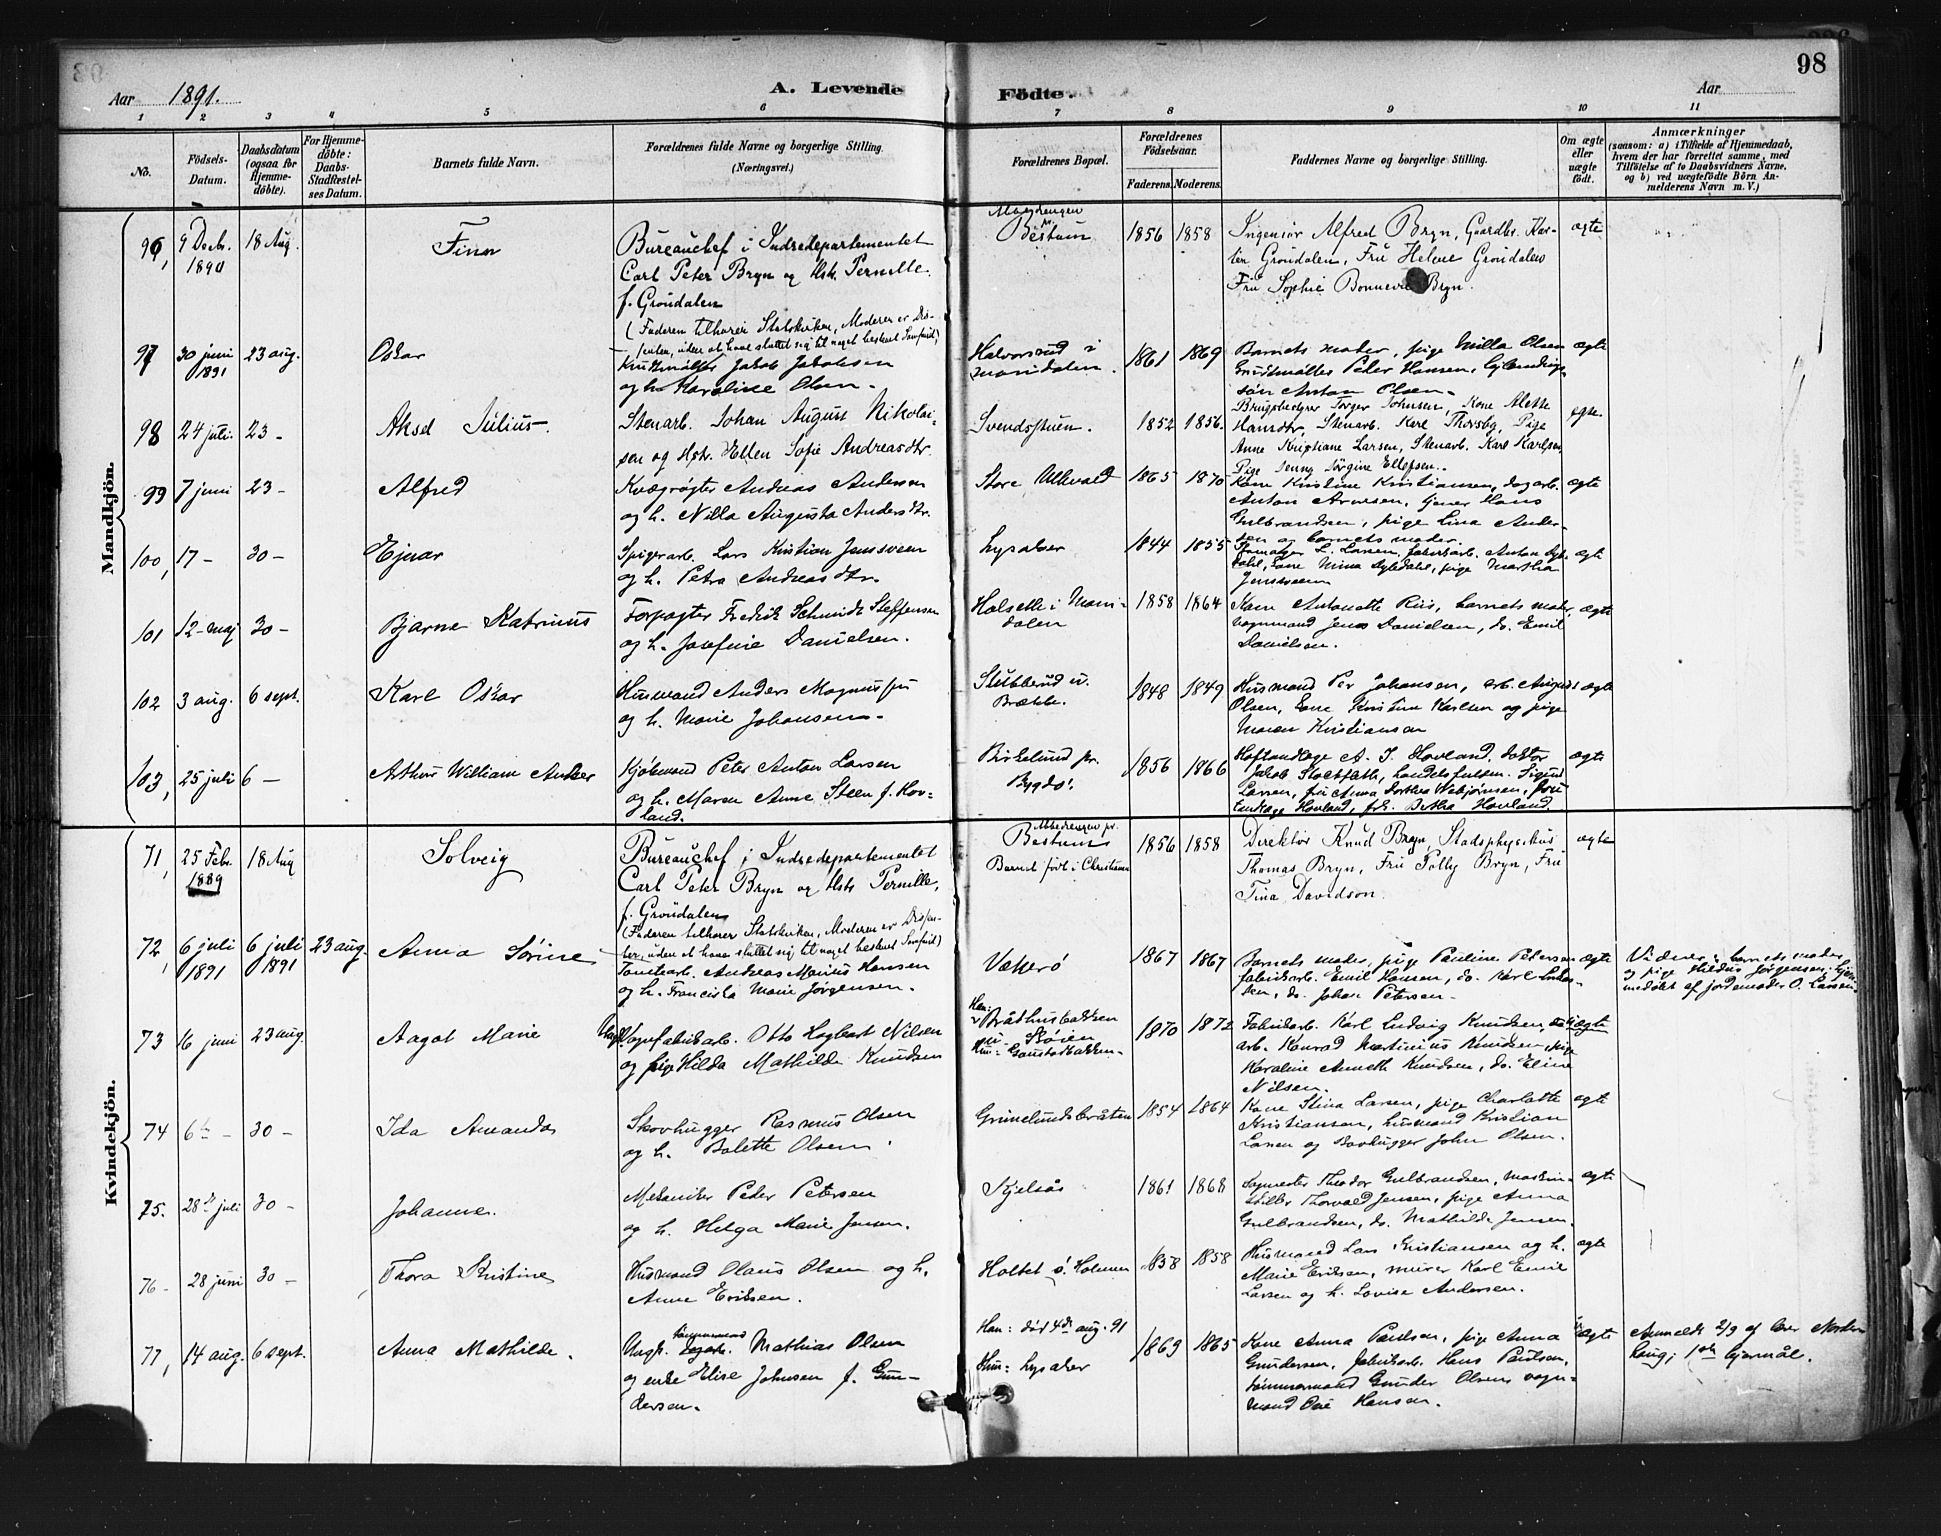 98
Aar 1891.
A. Levende Födte.
Aar
1 2 3 4 5 6 7 8 9 10 11
No.
Födsels-Datum.
Daabsdatum (ogsaa for Hjemme-döbte).
For Hjemme-döbte: Daabs-Stadfæstel-ses Datum.
Barnets fulde Navn.
Forældrenes fulde Navne og borgerlige Stilling. (Næringsvei.)
Forældrenes Bopæl.
Forældrenes Födselsaar.
Faderens. Moderens.
Faddernes Navne og borgerlige Stilling.
Om ægte eller uægte födt.
Anmærkninger
(saasom: a) i Tilfælde af Hjemmedaab,
hvem der har forrettet samme, med
Tilföielse af to Daabsvidners Navne,
og b) ved uægtefödte Börn An-
melderens Navn m. V.)
Mandkjön.
96, 9 Decb. 1890 18 Aug. Finn
Bureauchef i Indredepartementet
Carl Peter Bryn og Hstr. Pernille
f. Gröndalen
(Faderen tilhører Statskirken, Moderen er Dis-
senter, uden at have sluttet sig til noget bestemt Samfund)
Bestum 1856 1858
Ingeniør Alfred Bryn, Gaardbr. Kar-
sten Gröndalen, Fru Helene Gröndalen
Fru Sophie Bonnevie Bryn.
ægte
97 30 juni 1891 23 aug. Oskar
Jakob Jakobsen
og h. Karoline Olsen.
Halvorsrud i
maridalen. 1861 1869
Barnets moder, pige Milla Olsen
Peder Hansen,
søn Anton Olsen.
ægte
98 24 juli. 23 - Aksel Julius.
Stenarb. Johan August Nikolai-
sen og Hstr. Ellen Sofie Andreasdtr.
Svendsstuen. 1852 1856.
Brugsbestyrer Torger Johnsen, Kone Alette
Hansdtr, Stenarb. Karl Thorsby, Pige
Anne Kristiane Larsen, Stenarb. Karl Karlsen,
Pige Jenny Jørgine Ellefsen.
ægte
99 7 juni 23 - Alfred
Kvægrøgter Andreas Andersen
og h. Nilla Augusta Andersdtr.
Store Ullevold 1865 1870
Kone Kristine Kristiansen, dagarb.
Anton Arnesen, tjener Hans
Gulbrandsen, pige Lina Ander-
sen og barnets moder.
ægte
100, 17 - 30 - Ejnar
Spigerarb. Lars Kristian Jensveen
og h. Petra Andreasdtr.
Lysaker 1844 1855
L. Larsen, fabrikarb. Anton
Kone Mina pige Martha
Jensveen
ægte
101 12 - maj 30 - Bjarne Katrinus
Forpagter Fredrik Schmidt Steffensen
og h. Josefine Danielsen.
i Mari-
dalen 1858 1864
Kone Antonette Riis, barnets moder,
vognmand Jens Danielsen, do. Emil
Danielsen.
ægte
102 3 aug. 6 sept. Karl Oskar
Husmand Anders Magnussen
og h. Marie Johansen.
Stubberud u.
Brække. 1848 1849
Husmand Per Johansen, arb. August
Olsen, Kone Kristine Karlsen og pige
Maren Kristiansen
ægte
103, 25 juli 6 - Arthur William Anker
Kjøbmand Peter Anton Larsen
og h. Maren Anne Steen f. Hov-
land.
Birkelund pr.
Bygdø. 1856 1866
A. J. Hovland, doktor
Jakob Stockfleth, Sigurd
Larsen, fru Anna Dorthea Webjörnsen, fru
Hovland, frk. Betha Hovland.
ægte
Kvindekjön.
71, 25 Febr. 1889 18 Aug Solveig
Bureauchef i Indredepartementet
Carl Peter Bryn og Hstr Pernille,
f. Gröndalen
(Faderen tilhører Statskirken, Moderen er Dissen-
ter, uden at have sluttet sig til noget bestemt Samfund)
Bestum
Barnet født i Christiania 1856 1858
Direktør Knud Bryn, Stadsphysikus
Thomas Bryn, Fru Polly Bryn, Fru
Tina Davidson.
ægte
72, 6 juli 1891 6 juli 1891 23 aug. Anna Sørine
Andreas Marius Hansen
og h. Franciska Marie Jørgensen.
Vækerø 1867 1867
Barnets moder, pige Pauline Petersen
fabrikarb. Emil Hansen, do. Karl
do. Johan Petersen.
ægte
Vidner: barnets moder
og pige Hilda Jørgensen; hjem-
medøbt af jordemoder O. Larsen.
73 16 juni 23 aug. Aagot Marie
Ungk. Vognfabrikarb. Otto Hagbart Nilsen
og pige Hilda Mathilde Knudsen
Han: Bråthusbakken
u. Skøien
Hun: Gaustadbakken. 1870 1872
Fabrikarb. Karl Ludvig Knudsen,
arb. Konrad Martinius Knudsen, pige
Karoline Annette Knudsen, do. Eline
Nilsen.
uægte
74 6te - 30 - Ida Amanda
Skovhugger Rasmus Olsen
og h. Bolette Olsen.
Grimelundsbråten 1854 1864
Kone Stina Larsen, pige Charlotte
Kristiansen, husmand Kristian
Larsen og Skovhugger John Olsen.
ægte
75. 28de juli 30 - Johanne.
Mekaniker Peder Petersen
og h. Helga Marie Jensen.
Kjelsås 1861 1868
Theodor Gulbrandsen, maskin-
Thorvald Jensen, pige Anna
Gulbrandsen, do. Mathilde Jensen.
ægte
76 - 28 juni 30 - Thora Kristine
Husmand Olaus Olsen og h.
Anne Eriksen.
Holtet s. Holmen 1838 1858
Husmand Lars Kristiansen og h.
Marie Eriksen, murer Karl Emil
Larsen og h. Lovise Andersen.
ægte
77, 14 aug. 6 sept. Anna Mathilde.
Ungk. tømmermand Mathias Olsen
og enke Elise Johnsen f. Gun-
dersen.
Han: død 4de aug. 91
Hun: Lysaker 1869 1865
Kone Anna Paulsen, pige Anna
Gundersen, fabrikarb. Hans Paulsen,
tømmermand Gunder Olsen, vogn-
mand Ole Hansen.
uægte
Anmeldt 2/9 af
1ste lejermål.